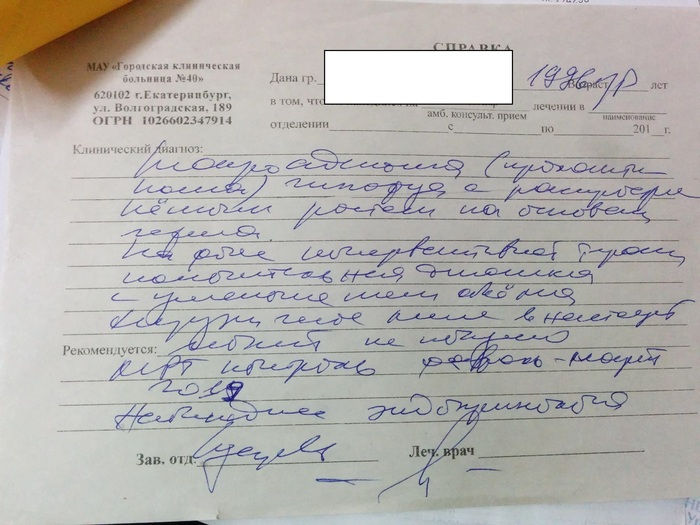 СПРАВКА
МАУ «Городская клиническая
больница №40»
620102 г.Екатеринбург,
ул. Волгоградская, 189
ОГРН 1026602347914
Дана гр.
1996 гр Возраст лет
в том, что лечении в
амб. консульт. прием наименование
отделении с по 201 г.
Клинический диагноз:
Макроаденома (пролакти-
нома) гипофиза с
ростом на основан
черепа.
На фоне консервативной терапии
положительная динамика
с уменьшением объёма
Хирургическое в настоящ
момент не показано
Рекомендуется:
МРТ контроль февраль-март
2019
Наблюдение эндокринолога
Зав. отд. Леч. врач